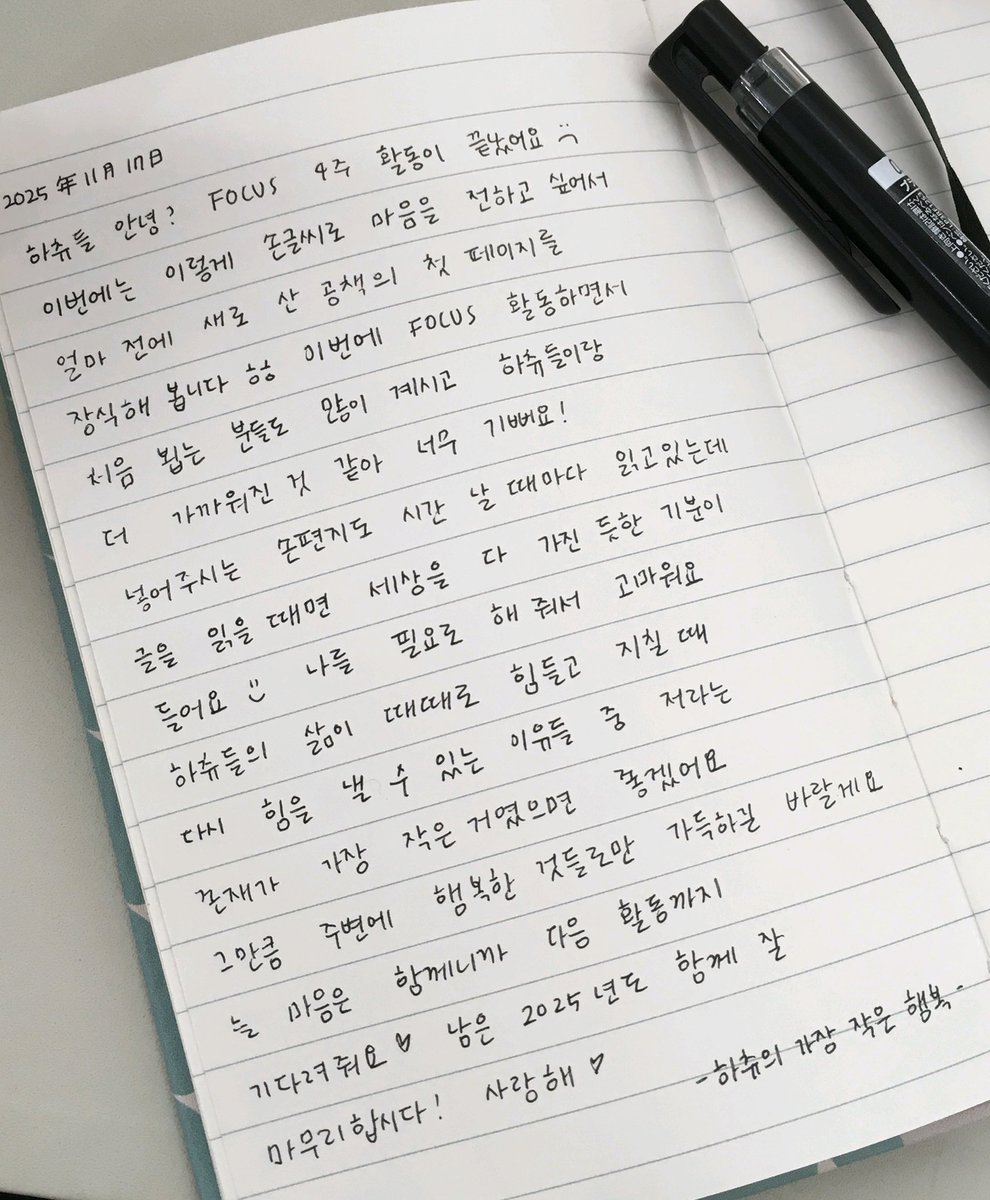 2025年 11月 17日
하츄들 안녕? FOCUS 4주 활동이 끝났어요 :(
이번에는 이렇게 손글씨로 마음을 전하고 싶어서
얼마 전에 새로 산 공책의 첫 페이지를
장식해 봅니다 ㅎㅎ 이번에 FOCUS 활동하면서
처음 뵙는 분들도 많이 계시고 하츄들이랑
더 가까워진 것 같아 너무 기뻐요!
넣어주시는 손편지도 시간 날 때마다 읽고있는데
글을 읽을 때면 세상을 다 가진 듯한 기분이
들어요 :) 나를 필요로 해 줘서 고마워요
하츄들의 삶이 때때로 힘들고 지칠 때
다시 힘을 낼 수 있는 이유들 중 저라는
존재가 가장 작은 거였으면 좋겠어요
그만큼 주변에 행복한 것들로만 가득하길 바랄게요
늘 마음은 함께니까 다음 활동까지
기다려줘요♡ 남은 2025년도 함께 잘
마우리합시다! 사랑해♡
-하츄의 가장 작은 행복-